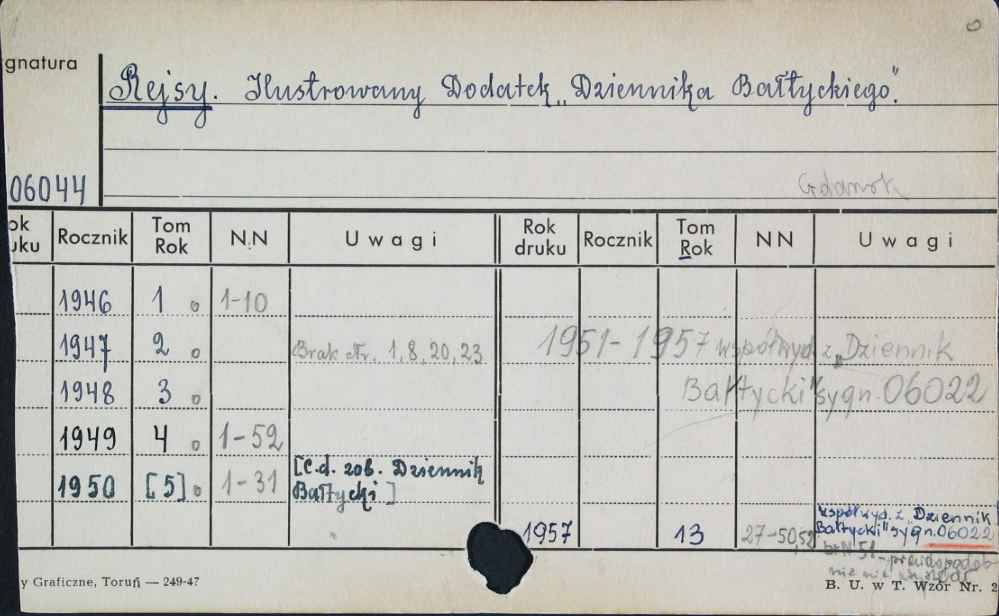 gnatura
Rejsy. Ilustrowany Dodatek „Dziennika Bałtyckiego."
06044
Gdańsk
ok
uku Rocznik Tom
Rok N.N Uwagi Rok
druku Rocznik Tom
Rok NN Uwagi
1946 1 1-10
1947 2 Brak Nr. 1, 8, 20, 23 1951-1957 współwyd. z „Dziennik
1948 3 Bałtycki" sygn. 06022
1949 4 1-52
1950 [5] 1-31 [C.d. zob. Dziennik
Bałtycki]
1957 13 27-50,52 współwyd. z „Dziennik
Bałtycki" sygn. 06022
br N 51 - prawdopodob
nie nie wyszedł
y Graficzne, Toruń — 249-47
B. U. w T. Wzór Nr. 2